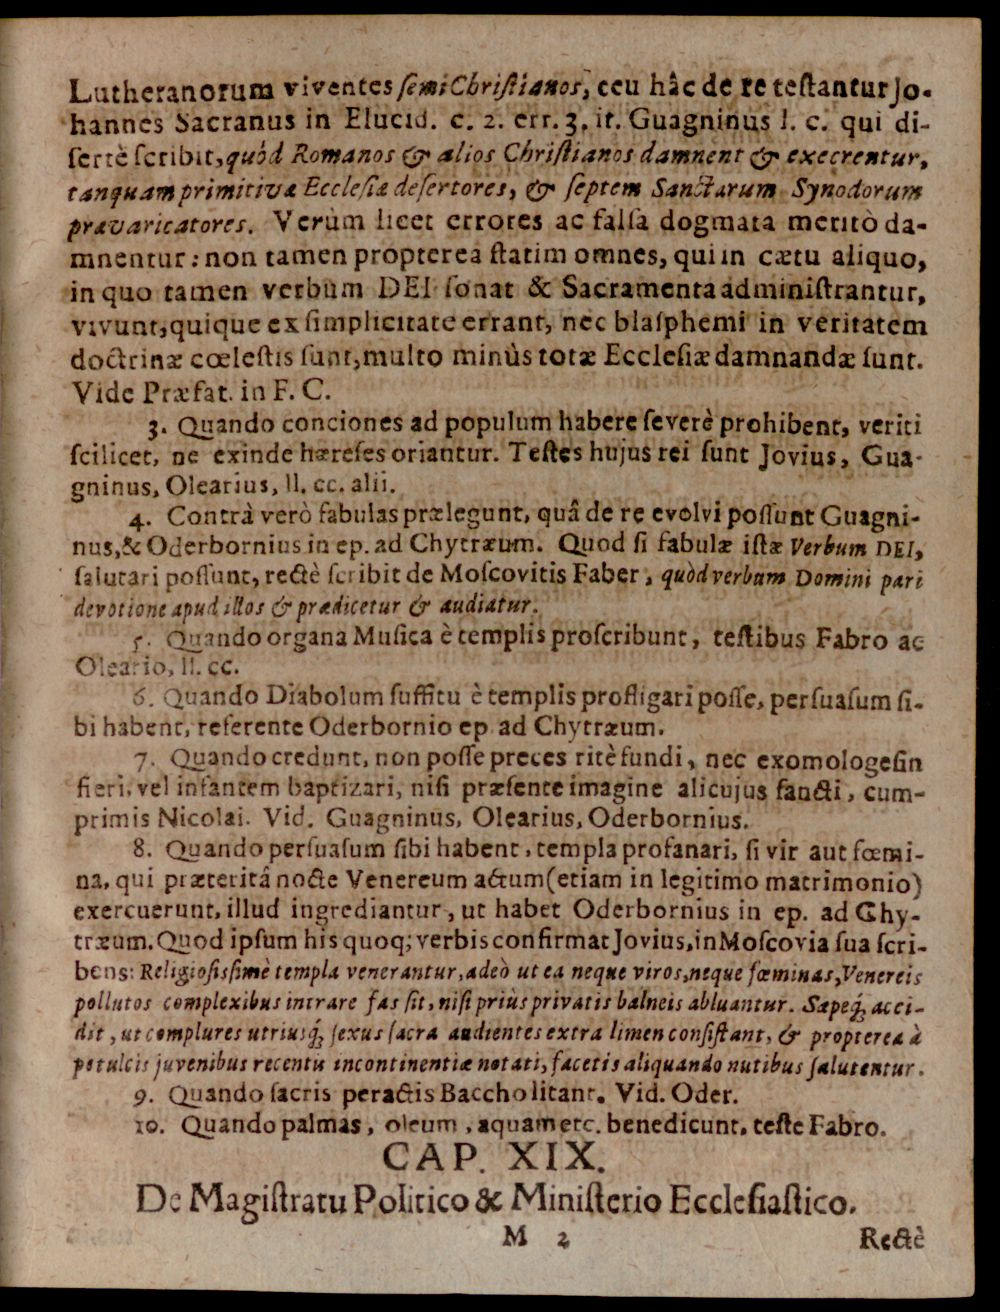 Lutheranorum viventes ſemiChriſtianos, ceu hâc de re teſtantur Jo-
hannes Sacranus in Elucid. c. 2. err. 3. it. Guagninus l. c. qui di-
ſertè ſcribit, quòd Romanos & alios Chriſtianos damnent & execrentur,
tanquam primitivæ Eccleſiæ deſertores, & ſeptem Sanctarum Synodorum
prævaricatores. Verùm licet errores ac falſa dogmata meritò da-
mnentur: non tamen propterea ſtatim omnes, qui in cætu aliquo,
in quo tamen verbum DEI ſonat & Sacramenta adminiſtrantur,
vivunt, quique ex ſimplicitate errant, nec blaſphemi in veritatem
doctrinæ cœleſtis ſunt, multo minùs totæ Eccleſiæ damnandæ ſunt.
Vide Præfat. in F. C.
3. Quando conciones ad populum habere ſeverè prohibent, veriti
ſcilicet, ne exinde hæreſes oriantur. Teſtes hujus rei ſunt Jovius, Gua-
gninus, Olearius, ll. cc. alii.
4. Contrà verò fabulas prælegunt, quâ de re evolvi poſſunt Guagni-
nus, & Oderbornius in ep. ad Chytræum. Quod ſi fabulæ iſtæ Verbum DEI,
ſalutari poſſunt, rectè ſcribit de Moſcovitis Faber, quòd verbum Domini pari
devotione apud illos & prædicetur & audiatur.
5. Quando organa Muſica è templis proſcribunt, teſtibus Fabro ac
Oleario, ll. cc.
6. Quando Diabolum ſuffitu è templis profligari poſſe, perſuaſum ſi-
bi habent, referente Oderbornio ep. ad Chytræum.
7. Quando credunt, non poſſe preces ritè fundi, nec exomologeſin
fieri, vel infantem baptizari, niſi præſente imagine alicujus ſancti, cum-
primis Nicolai. Vid. Guagninus, Olearius, Oderbornius.
8. Quando perſuaſum ſibi habent, templa profanari, ſi vir aut fœmi-
na, qui præteritâ nocte Venereum actum (etiam in legitimo matrimonio)
exercuerunt, illud ingrediantur, ut habet Oderbornius in ep. ad Chy-
træum. Quod ipſum his quoq; verbis confirmat Jovius, in Moſcovia ſua ſcri-
bens: Religioſiſſimè templa venerantur, adeò ut ea neque viros, neque fœminas, Venereis
pollutos complexibus intrare fas ſit, niſi priùs privatis balneis abluantur. Sæpeq́; acci-
dit, ut complures utriusq́; ſexus ſacra audientes extra limen conſiſtant, & propterea à
petulcis juvenibus recentis incontinentiæ notati, facetis aliquando nutibus ſalutentur.
9. Quando ſacris peractis Baccho litant. Vid. Oder.
10. Quando palmas, oleum, aquam etc. benedicunt, teſte Fabro.
CAP. XIX.
De Magiſtratu Politico & Miniſterio Eccleſiaſtico.
M 2 Rectè